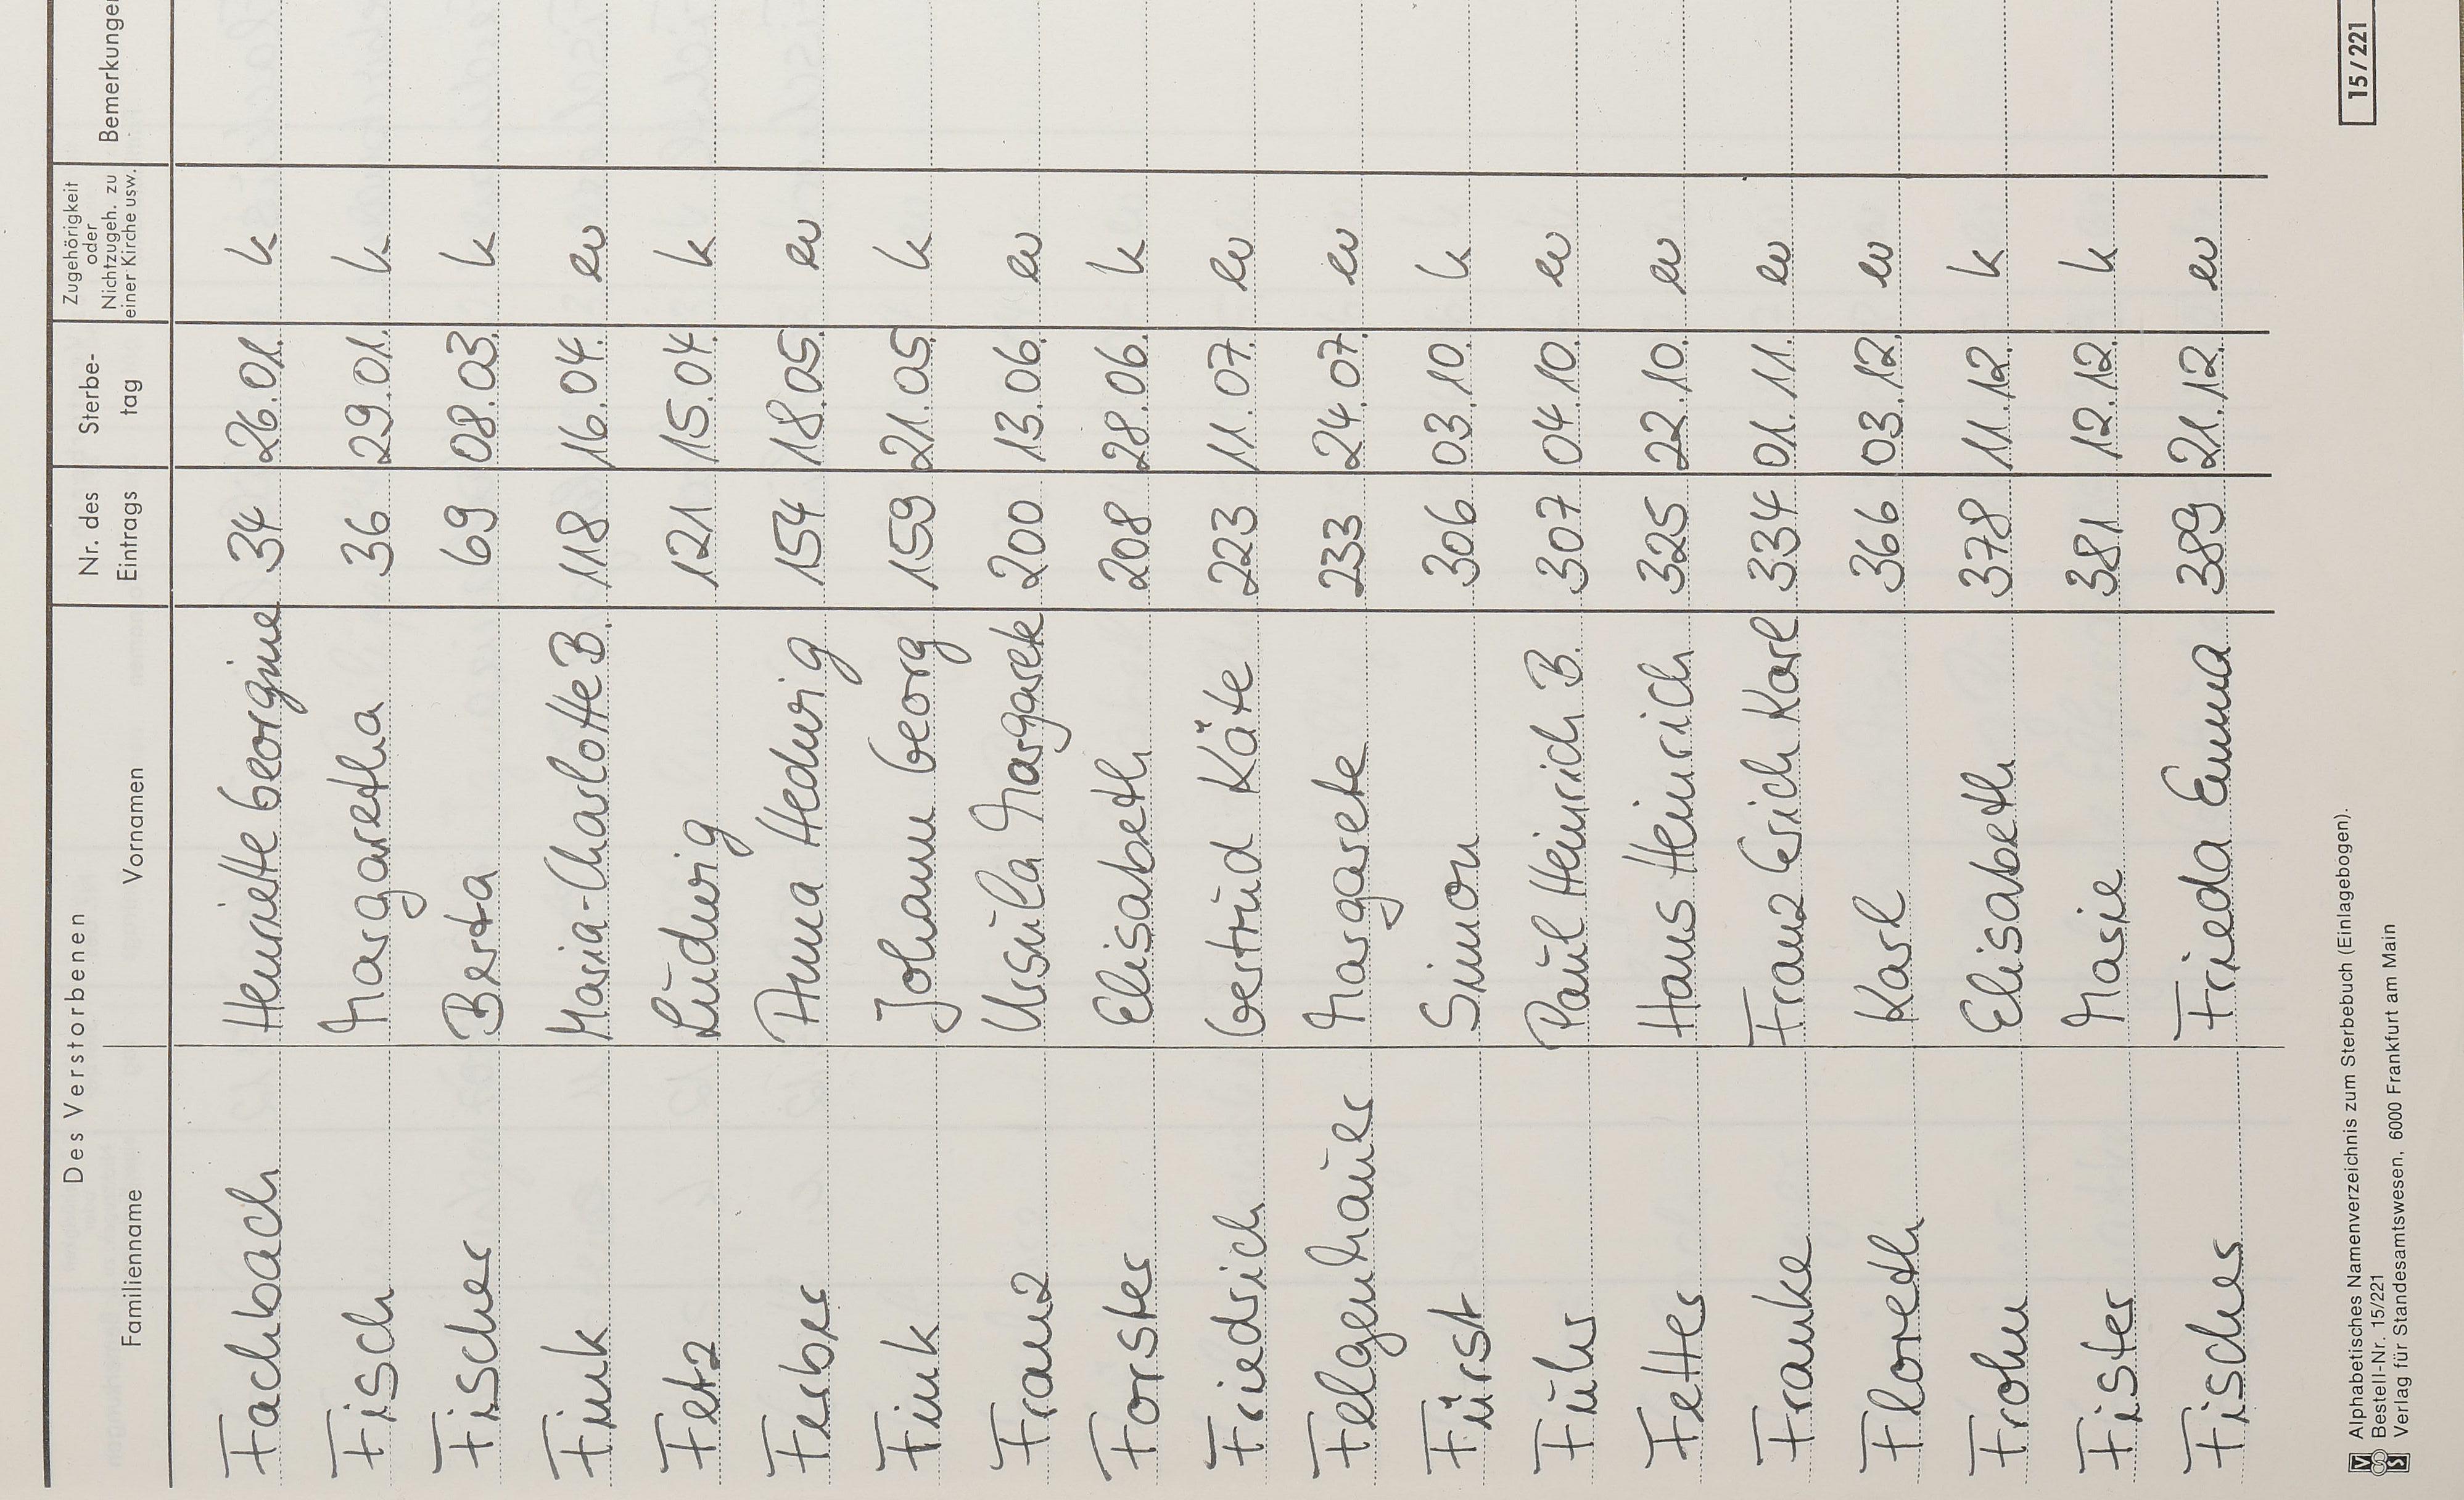 Des Verstorbenen
Familienname Vornamen Nr. des Eintrags Sterbe-tag Zugehörigkeit oder Nichtzugeh. zu einer Kirche usw. Bemerkungen
Fachbach Henriette Georgine 34 26.01. k
Fisch Margaretha 36 29.01. k
Fischer Berta 69 08.03. k
Fink Maria-Charlotte B. 118 16.04. ev
Fetz Ludwig 121 15.04. k
Ferber Anna Hedwig 154 18.05. ev
Fink Johann Georg 159 21.05. k
Franz Ursula Margarete 200 13.06. ev
Forster Elisabeth 208 28.06. k
Friedrich Gertrud Käte 223 11.07. ev
Felgenhauer Margarete 233 24.07. ev
Fürst Simon 306 03.10. k
Führ Paul Heinrich B. 307 04.10. ev
Fetter Hans Heinrich 325 22.10. ev
Franke Franz Erich Karl 334 01.11. ev
Floreth Karl 366 03.12. ev
Frohn Elisabeth 378 11.12. k
Fister Marie 381 12.12. k
Fischer Frieda Emma 389 21.12. ev
Alphabetisches Namenverzeichnis zum Sterbebuch (Einlagebogen).
Bestell-Nr. 15/221
Verlag für Standesamtswesen, 6000 Frankfurt am Main
15/221